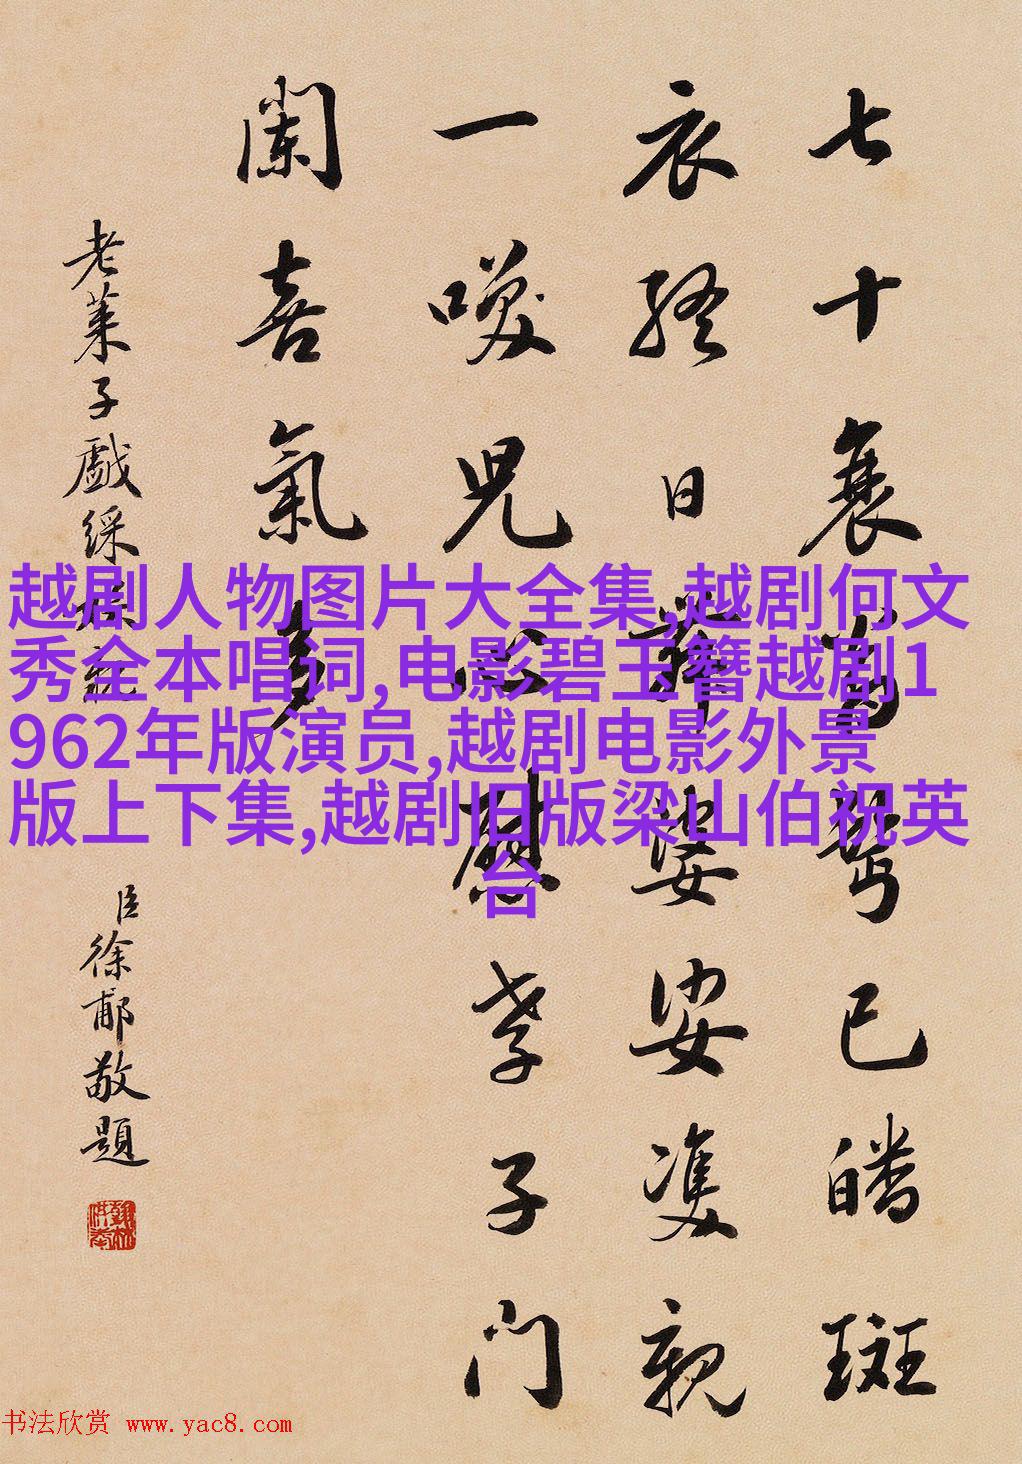 七十衰翁鬢已皤斑
衣終日舞婆娑雙親
一咲兒心慰孝子門
闌喜氣多
老萊子戲綵娛親
臣徐郙敬題
越剧人物图片大全集,越剧何文
秀全本唱词,电影碧玉簪越剧1
962年版演员,越剧电影外景
版上下集,越剧旧版梁山伯祝英
台
书法欣赏 www.yac8.com